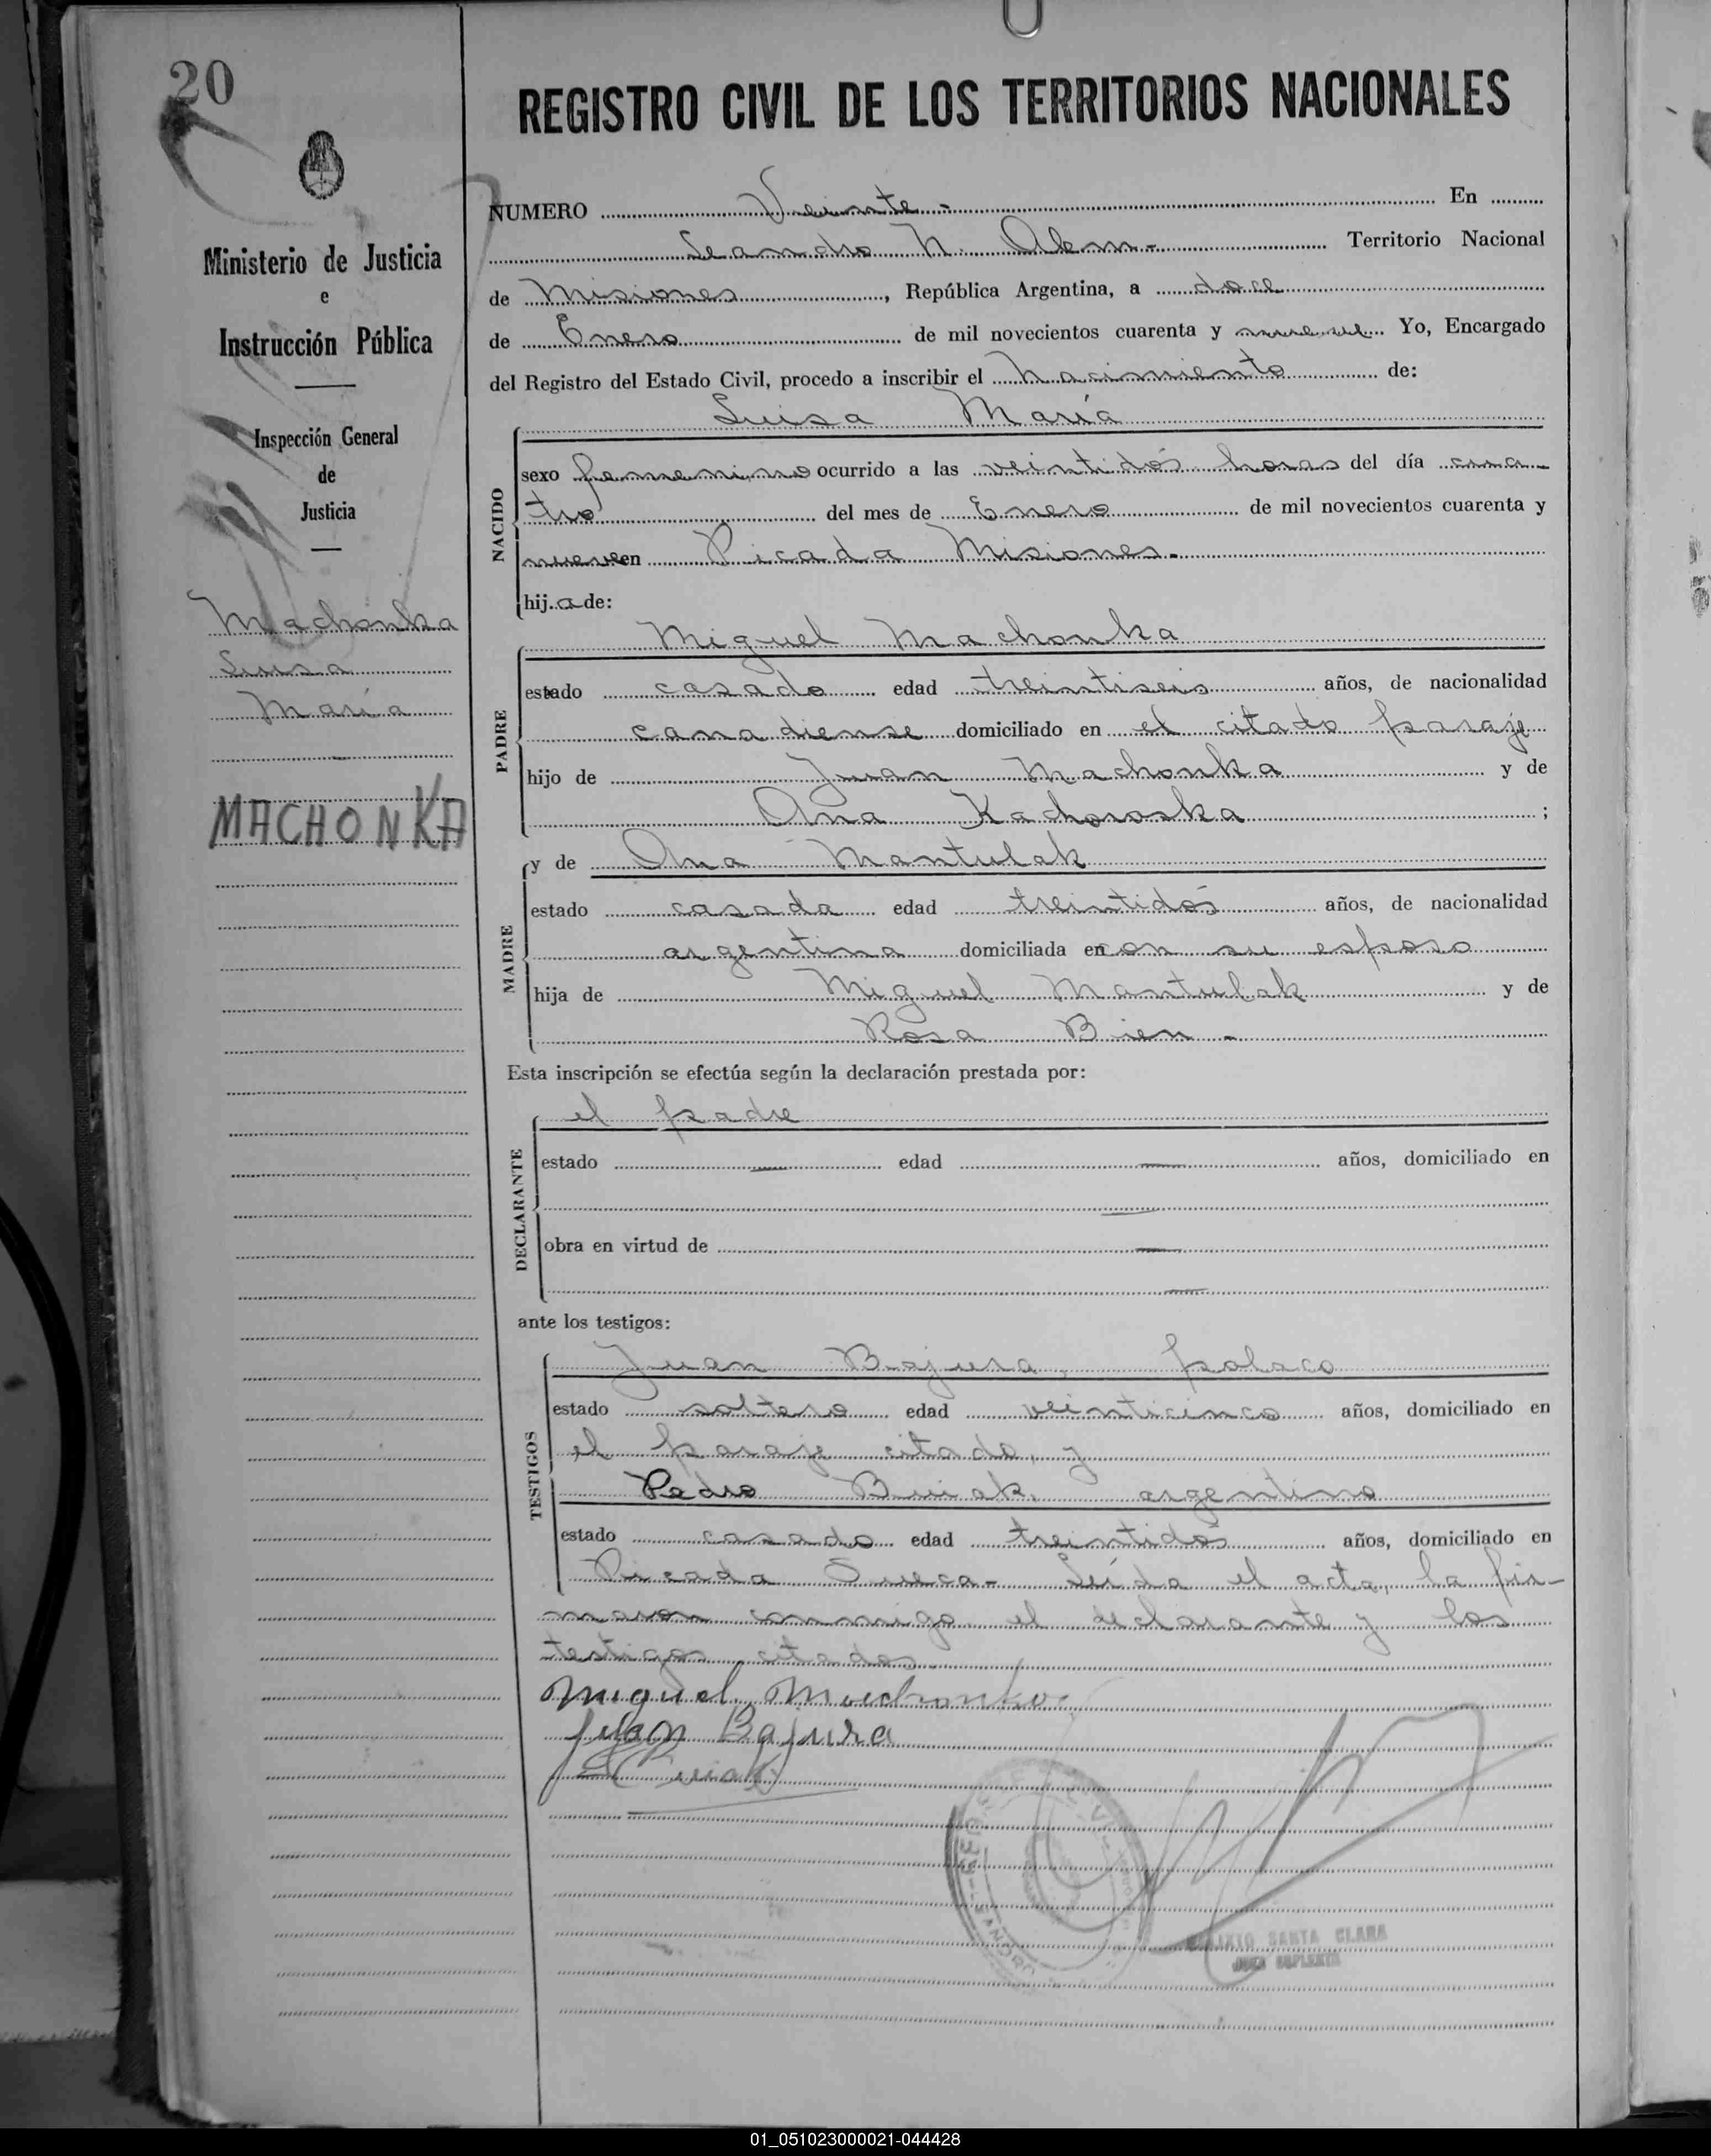 20
Ministerio de Justicia
e
Instrucción Pública
Inspección General
de
Justicia
Machonka
Luisa
María
MACHONKA
REGISTRO CIVIL DE LOS TERRITORIOS NACIONALES
NUMERO Veinte - En
Leandro N. Alem - Territorio Nacional
de Misiones, República Argentina, a doce
de Enero de mil novecientos cuarenta y nueve Yo, Encargado
del Registro del Estado Civil, procedo a inscribir el nacimiento de:
Luisa María
NACIDO
sexo femenino ocurrido a las veintidós horas del día cua-
tro del mes de Enero de mil novecientos cuarenta y
nueve en Picada Misiones.
hija de:
PADRE
Miguel Machonka
estado casado edad treintiseis años, de nacionalidad
canadiense domiciliado en el citado paraje
hijo de Juan Machonka y de
Ana Kachoroska ;
MADRE
y de Ana Mantulak
estado casada edad treintidós años, de nacionalidad
argentina domiciliada en con su esposo
hija de Miguel Mantulak y de
Rosa Bien -
Esta inscripción se efectúa según la declaración prestada por:
DECLARANTE
el padre
estado — edad — años, domiciliado en
—
obra en virtud de —
—
ante los testigos:
TESTIGOS
Juan Bajura, polaco
estado soltero edad veinticinco años, domiciliado en
el paraje citado, y
Pedro Buiak, argentino
estado casado edad treintidós años, domiciliado en
Picada Sueca - Leída el acta, la fir-
maron conmigo el declarante y los
testigos citados.
Miguel Machonka
Juan Bajura
SANTA CLARA
JUEZ SUPLENTE
01_051023000021-044428